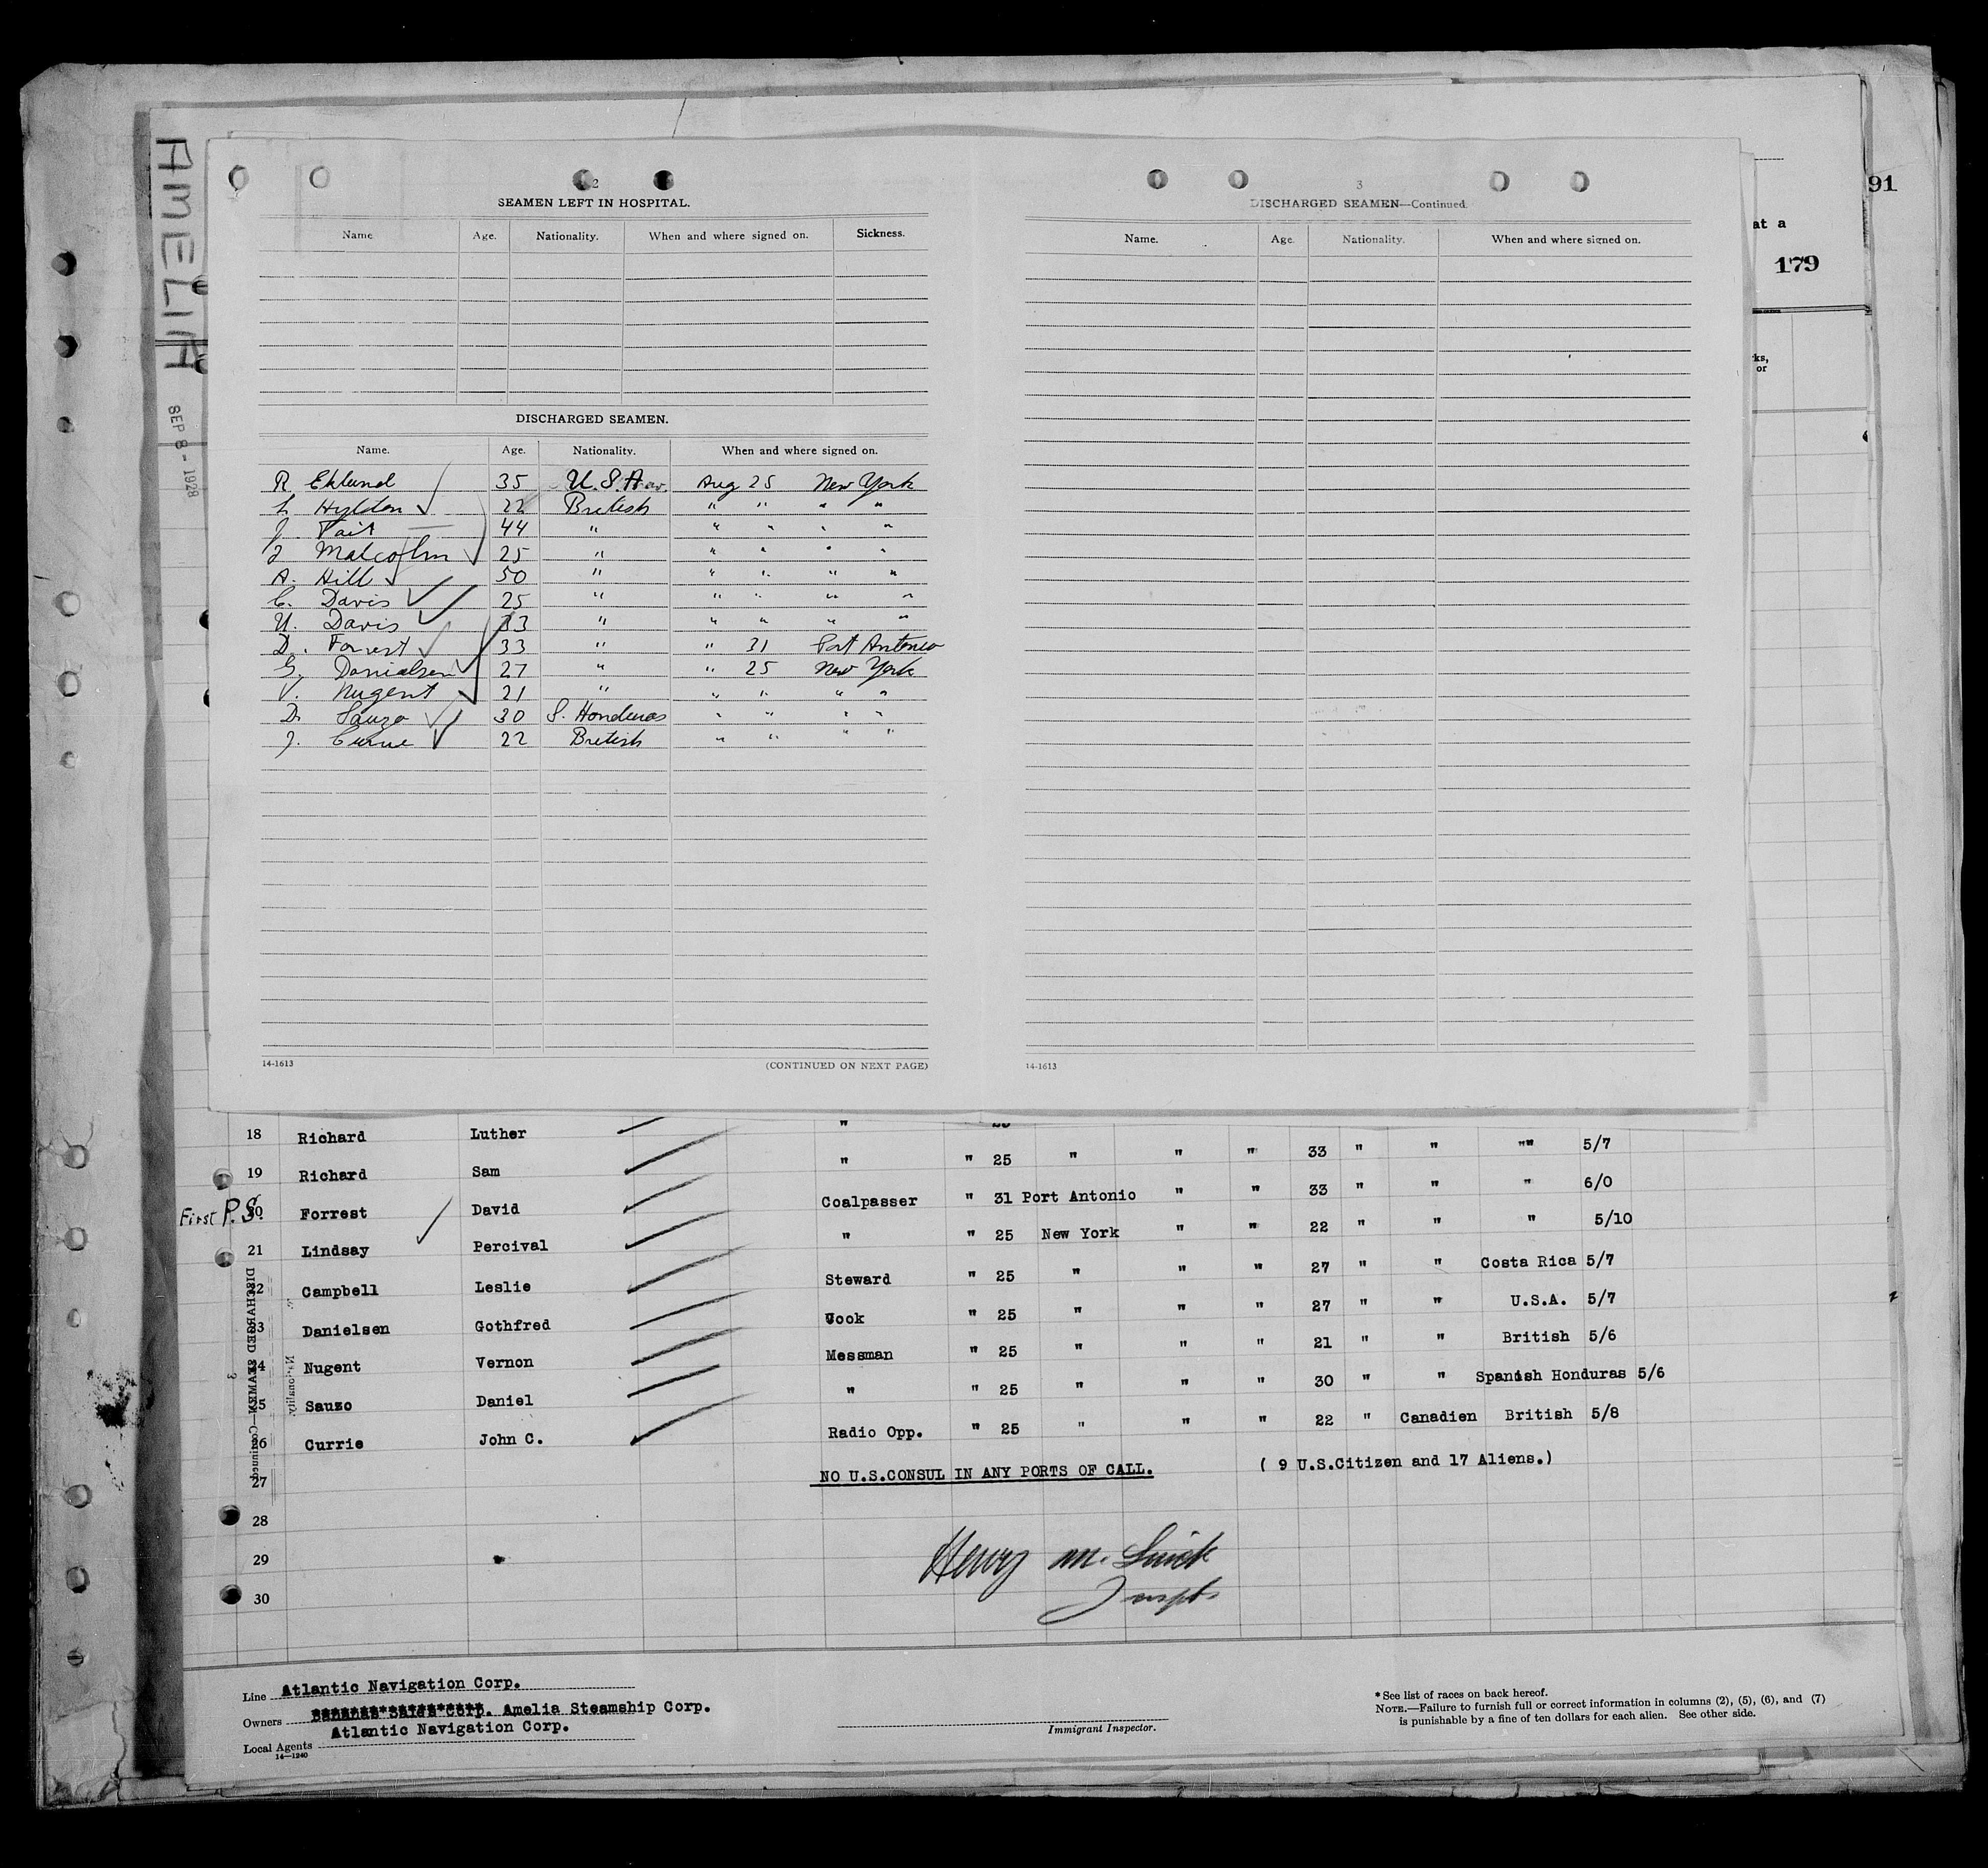 AMELIA
SEP 8 - 1928
2
SEAMEN LEFT IN HOSPITAL.
Name Age. Nationality. When and where signed on. Sickness.
DISCHARGED SEAMEN.
Name. Age. Nationality. When and where signed on.
R Eklund 35 U.S.A. Aug 25 New York
L. Hylton 22 British " " " "
J. Tait 44 " " " " "
J Malcolm 25 " " " " "
A. Hill 50 " " " " "
C. Davis 25 " " " " "
U. Davis 33 " " " " "
D. Forrest 33 " " 31 Port Antonio
G. Danielsen 27 " " 25 New York
V. Nugent 21 " " " " "
D. Sauzo 30 S. Honduras " " " "
J. Currie 22 British " " " "
14-1613 (CONTINUED ON NEXT PAGE)
3
DISCHARGED SEAMEN—Continued.
Name. Age. Nationality. When and where signed on.
14-1613
91
at a
179
ks,
or
18 Richard Luther "
19 Richard Sam " " 25 " " " 33 " " "" 5/7
First P.S. 20 Forrest David Coalpasser " 31 Port Antonio " " 33 " " " 6/0
21 Lindsay Percival " " 25 New York " " 22 " " " 5/10
22 Campbell Leslie Steward " 25 " " " 27 " " Costa Rica 5/7
23 Danielsen Gothfred Cook " 25 " " " 27 " " U.S.A. 5/7
24 Nugent Vernon Messman " 25 " " " 21 " " British 5/6
25 Sauzo Daniel " " 25 " " " 30 " " Spanish Honduras 5/6
26 Currie John C. Radio Opp. " 25 " " " 22 " Canadien British 5/8
27 NO U.S.CONSUL IN ANY PORTS OF CALL. ( 9 U.S.Citizen and 17 Aliens.)
28
29 Henry M.
30
DISCHARGED SEAMEN—Continued
3
Nationality.
Line Atlantic Navigation Corp.
Owners Amelia Steamship Corp.
Atlantic Navigation Corp.
Local Agents
14—1240
Immigrant Inspector.
* See list of races on back hereof.
NOTE.—Failure to furnish full or correct information in columns (2), (5), (6), and (7)
is punishable by a fine of ten dollars for each alien. See other side.